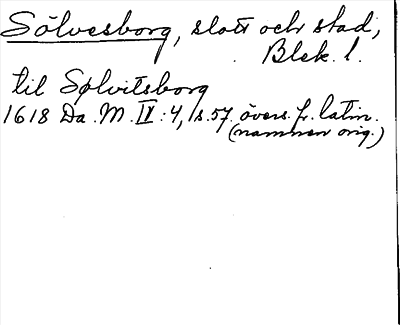 Sölvesborg, slott och stad,
Blek. l.
til Sølvitsborg
1618 Da. M. IV: 4, s. 57. övers. fr. latin.
(namnen orig.)